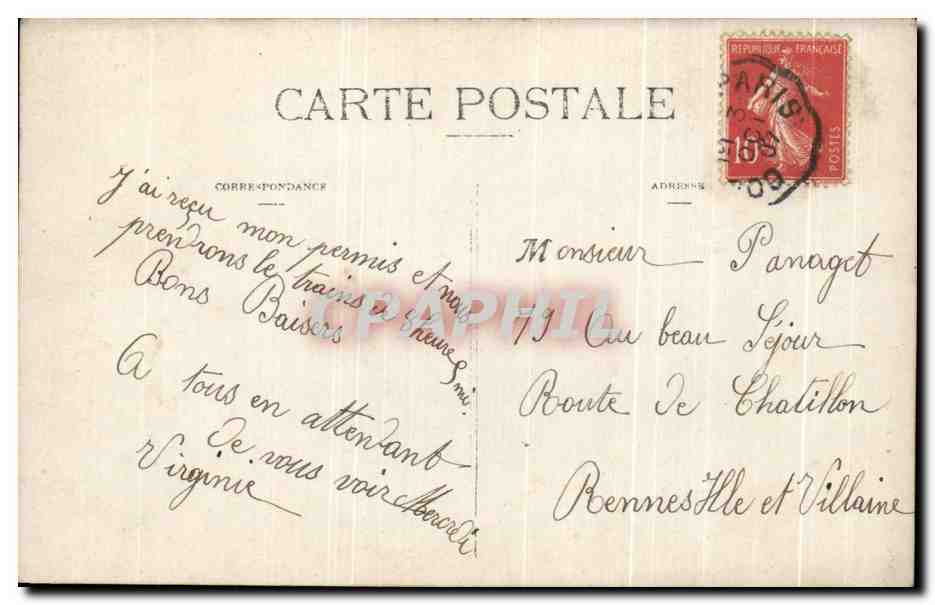 CARTE POSTALE
CORRESPONDANCE
ADRESSE
REPUBLIQUE FRANÇAISE
10
POSTES
PARIS
J'ai reçu mon permis et nous
prendrons le trains a 8 heure
Bons Baisers
A tous en attendant
de vous voir Mercredi
Virginie
Monsieur Panaget
79 Au beau Séjour
Route de Chatillon
Rennes Ille et Villaine
CPAPHIL